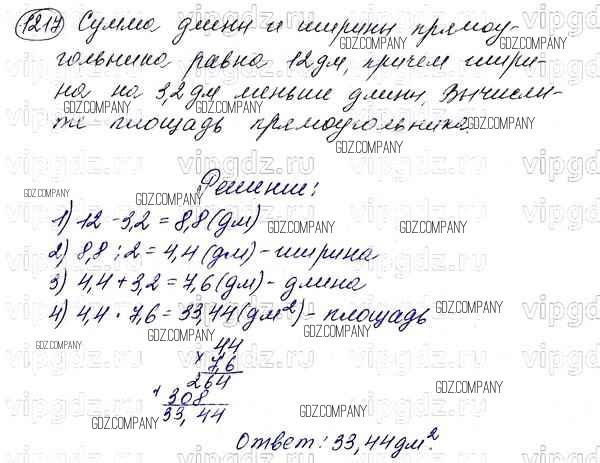 1217 Сумма длины и ширины прямоу-
гольника равна 12 дм, причем шири-
на на 3,2 дм меньше длины. Вычисли-
те площадь прямоугольника.
Решение:
1) 12 - 3,2 = 8,8 (дм)
2) 8,8 : 2 = 4,4 (дм) - ширина
3) 4,4 + 3,2 = 7,6 (дм) - длина
4) 4,4 · 7,6 = 33,44 (дм²) - площадь
4,4
× 7,6
264
+ 308
33,44
Ответ: 33,44 дм².
vipgdz.ru
GDZ.COMPANY